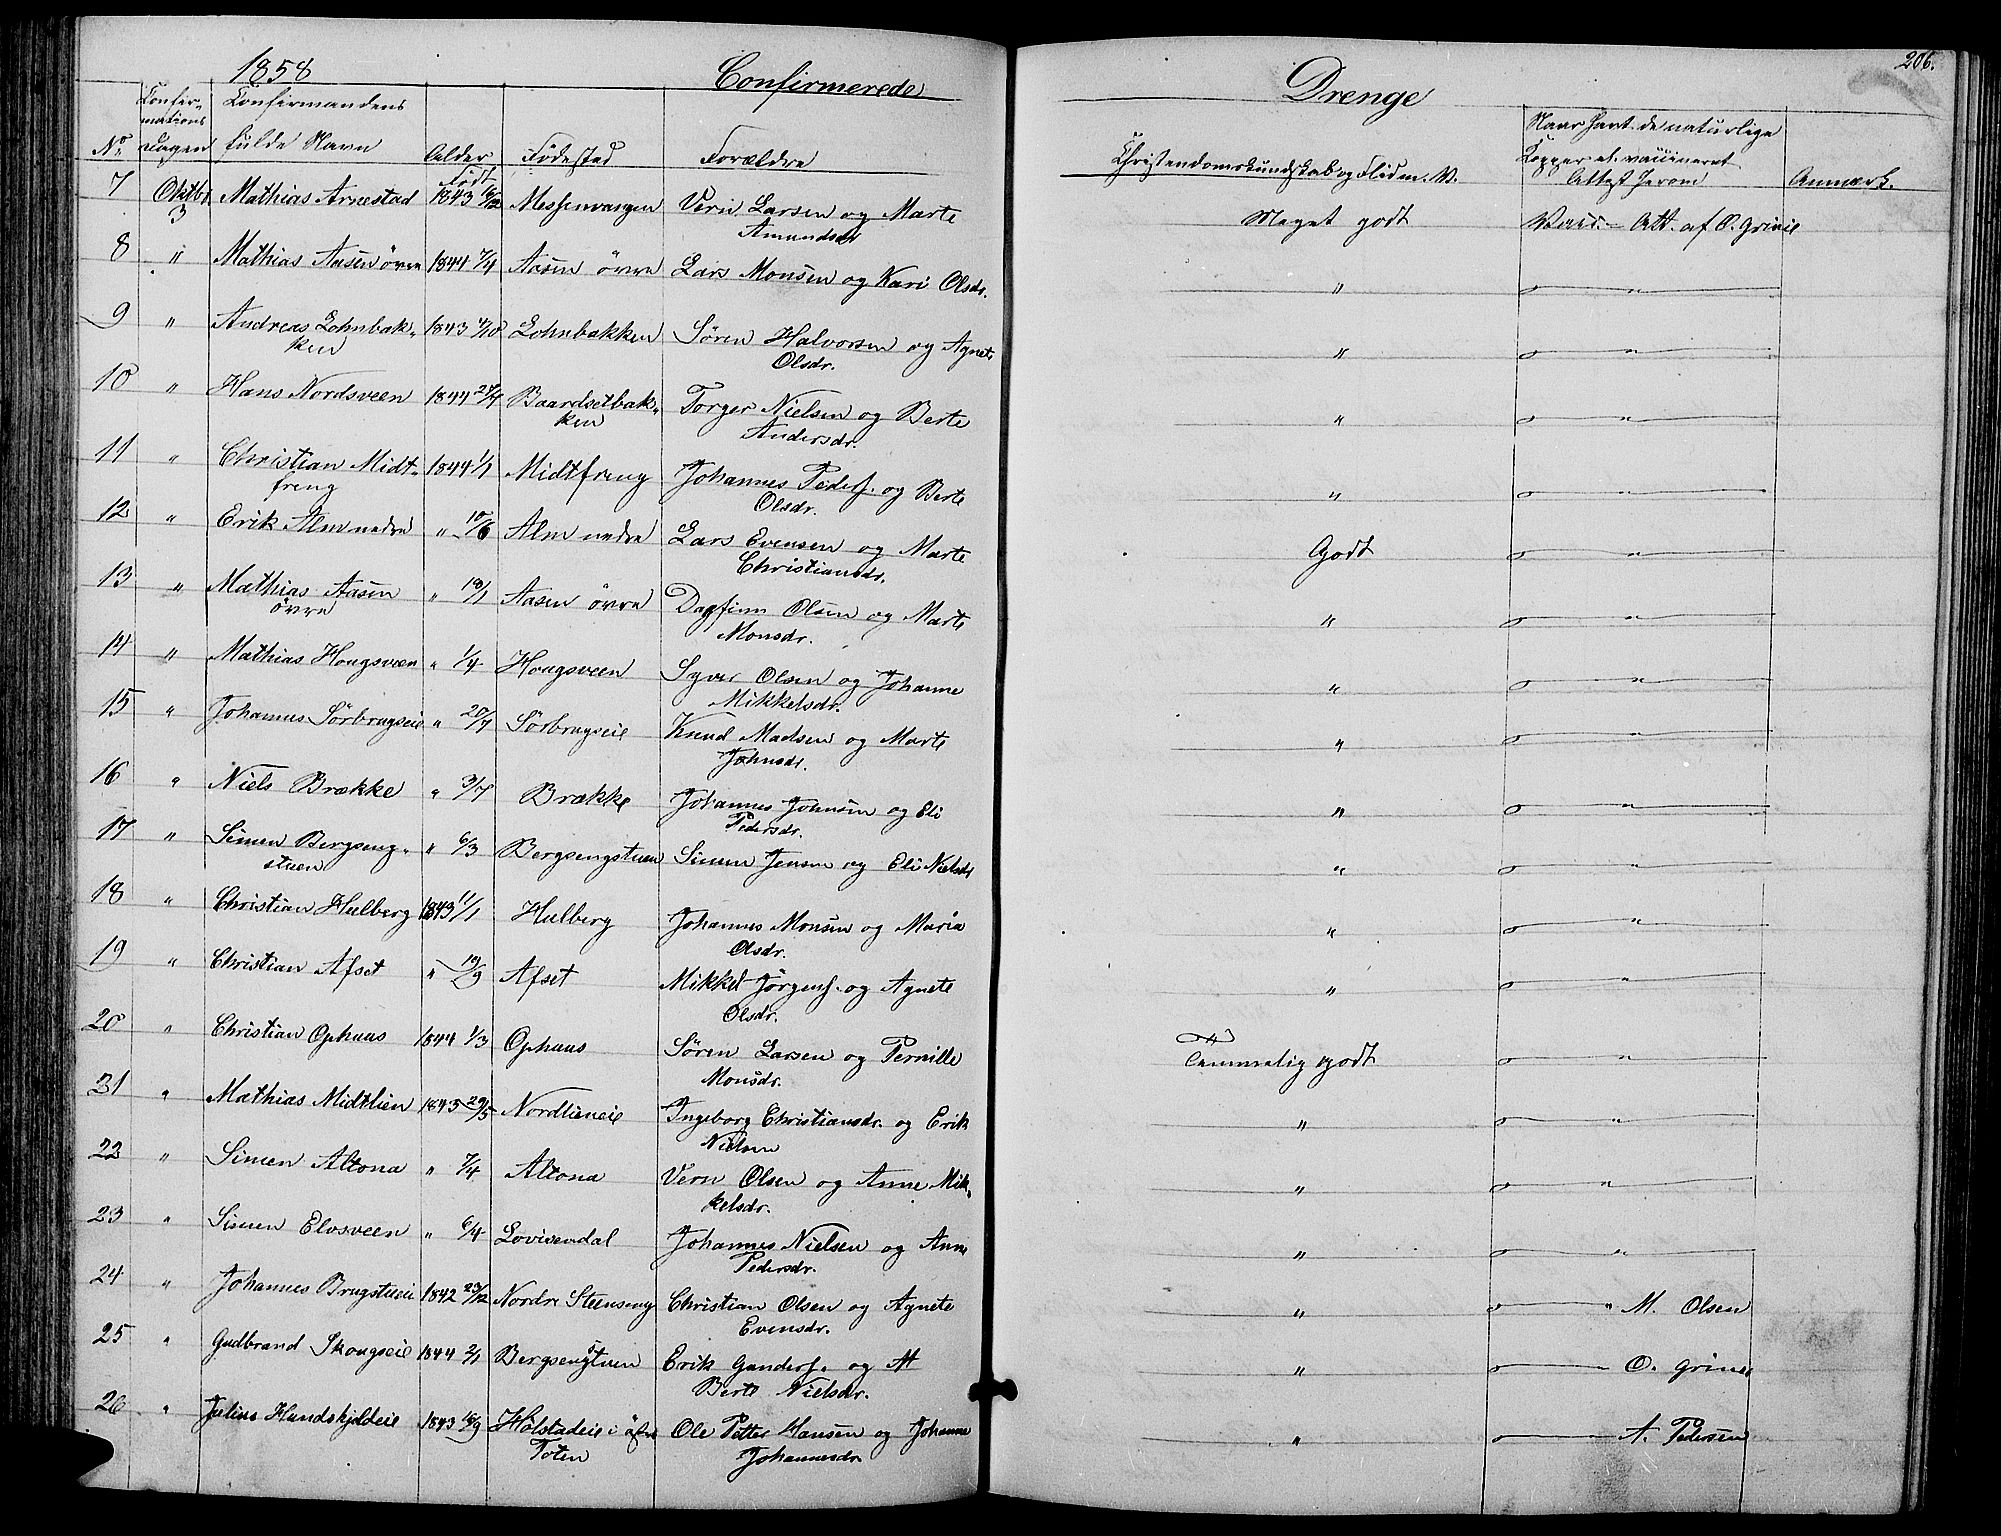 1858 Confirmerede Drenge 206.
No. Confirmations Dagen Confirmandens fulde Navn Alder Født Fødested Forældre Christendomskundskab og Flid m. V. Naar havt de naturlige Kopper el. vaccineret Attest herom Anmærk.
7 Oktbr 3 Mathias Arnestad 1843 6/12 Messenvangen Vern Larsen og Marte Meget godt Vacc. Att. af O. Grinie
Amundsdr
8 " Mathias Aasen övre 1844 7/4 Aasen övre Lars Monsen og Kari Olsdr. " "
9 " Andreas Lohnbak- 1843 4/10 Lohnbakken Sören Halvorsen og Agnete " "
ken Olsdr.
10 " Hans Nordsveen 1844 24/4 Baardsetbak- Torger Nielsen og Berte " "
ken Andersdr.
11 " Christian Midt- 1844 1/1 Midtfreng Johannes Pedersf. og Berte " "
freng Olsdr.
12 " Erik Alm nedre " 10/6 Alm nedre Lars Evensen og Marte Godt "
Christiansdr.
13 " Mathias Aasen " 18/1 Aasen övre Dagfinn Olsen og Marte " "
övre Monsdr.
14 " Mathias Hougsveen " 1/4 Hougsveen Syver Olsen og Johanne " "
Mikkelsdr.
15 " Johannes Sörbrugseie " 20/7 Sörbrugseie Knud Madsen og Marte " "
Johnsdr.
16 " Niels Brække " 3/7 Brække Johannes Johnsen og Eli " "
Pedersdr.
17 " Simen Bergseng- " 6/3 Bergsengstuen Simen Jensen og Eli Nielsdr " "
stuen
18 " Christian Hulberg 1843 11/1 Hulberg Johannes Monsen og Maria " "
Olsdr.
19 " Christian Afset " 19/9 Afset Mikkel Jörgensf. og Agnete " "
Olsdr.
20 " Christian Ophuus 1844 1/3 Ophuus Sören Larsen og Pernille Temmelig godt "
Monsdr.
21 " Mathias Midtlien 1843 29/5 Nordlieneie Ingeborg Christiansdr. og Erik " "
Nielsen
22 " Simen Altona " 7/4 Altona Vern Olsen og Anne Mik- " "
kelsdr.
23 " Simen Elvsveen " 6/4 Lovisendal Johannes Nielsen og Anne " "
Pedersdr.
24 " Johannes Brugstueie 1842 23/12 Nordre Steenseng Christian Olsen og Agnete " " M. Olsen
Evensdr.
25 " Gudbrand Skougseie 1844 2/1 Bergsengstuen Erik Gundersf. og " O. Grinie
Berte Nielsdr.
26 " Julius Hundskjoldeie 1843 18/9 Holstadeie i östre Ole Petter Hansen og Johanne " A. Pedersen
Toten Johannesdr